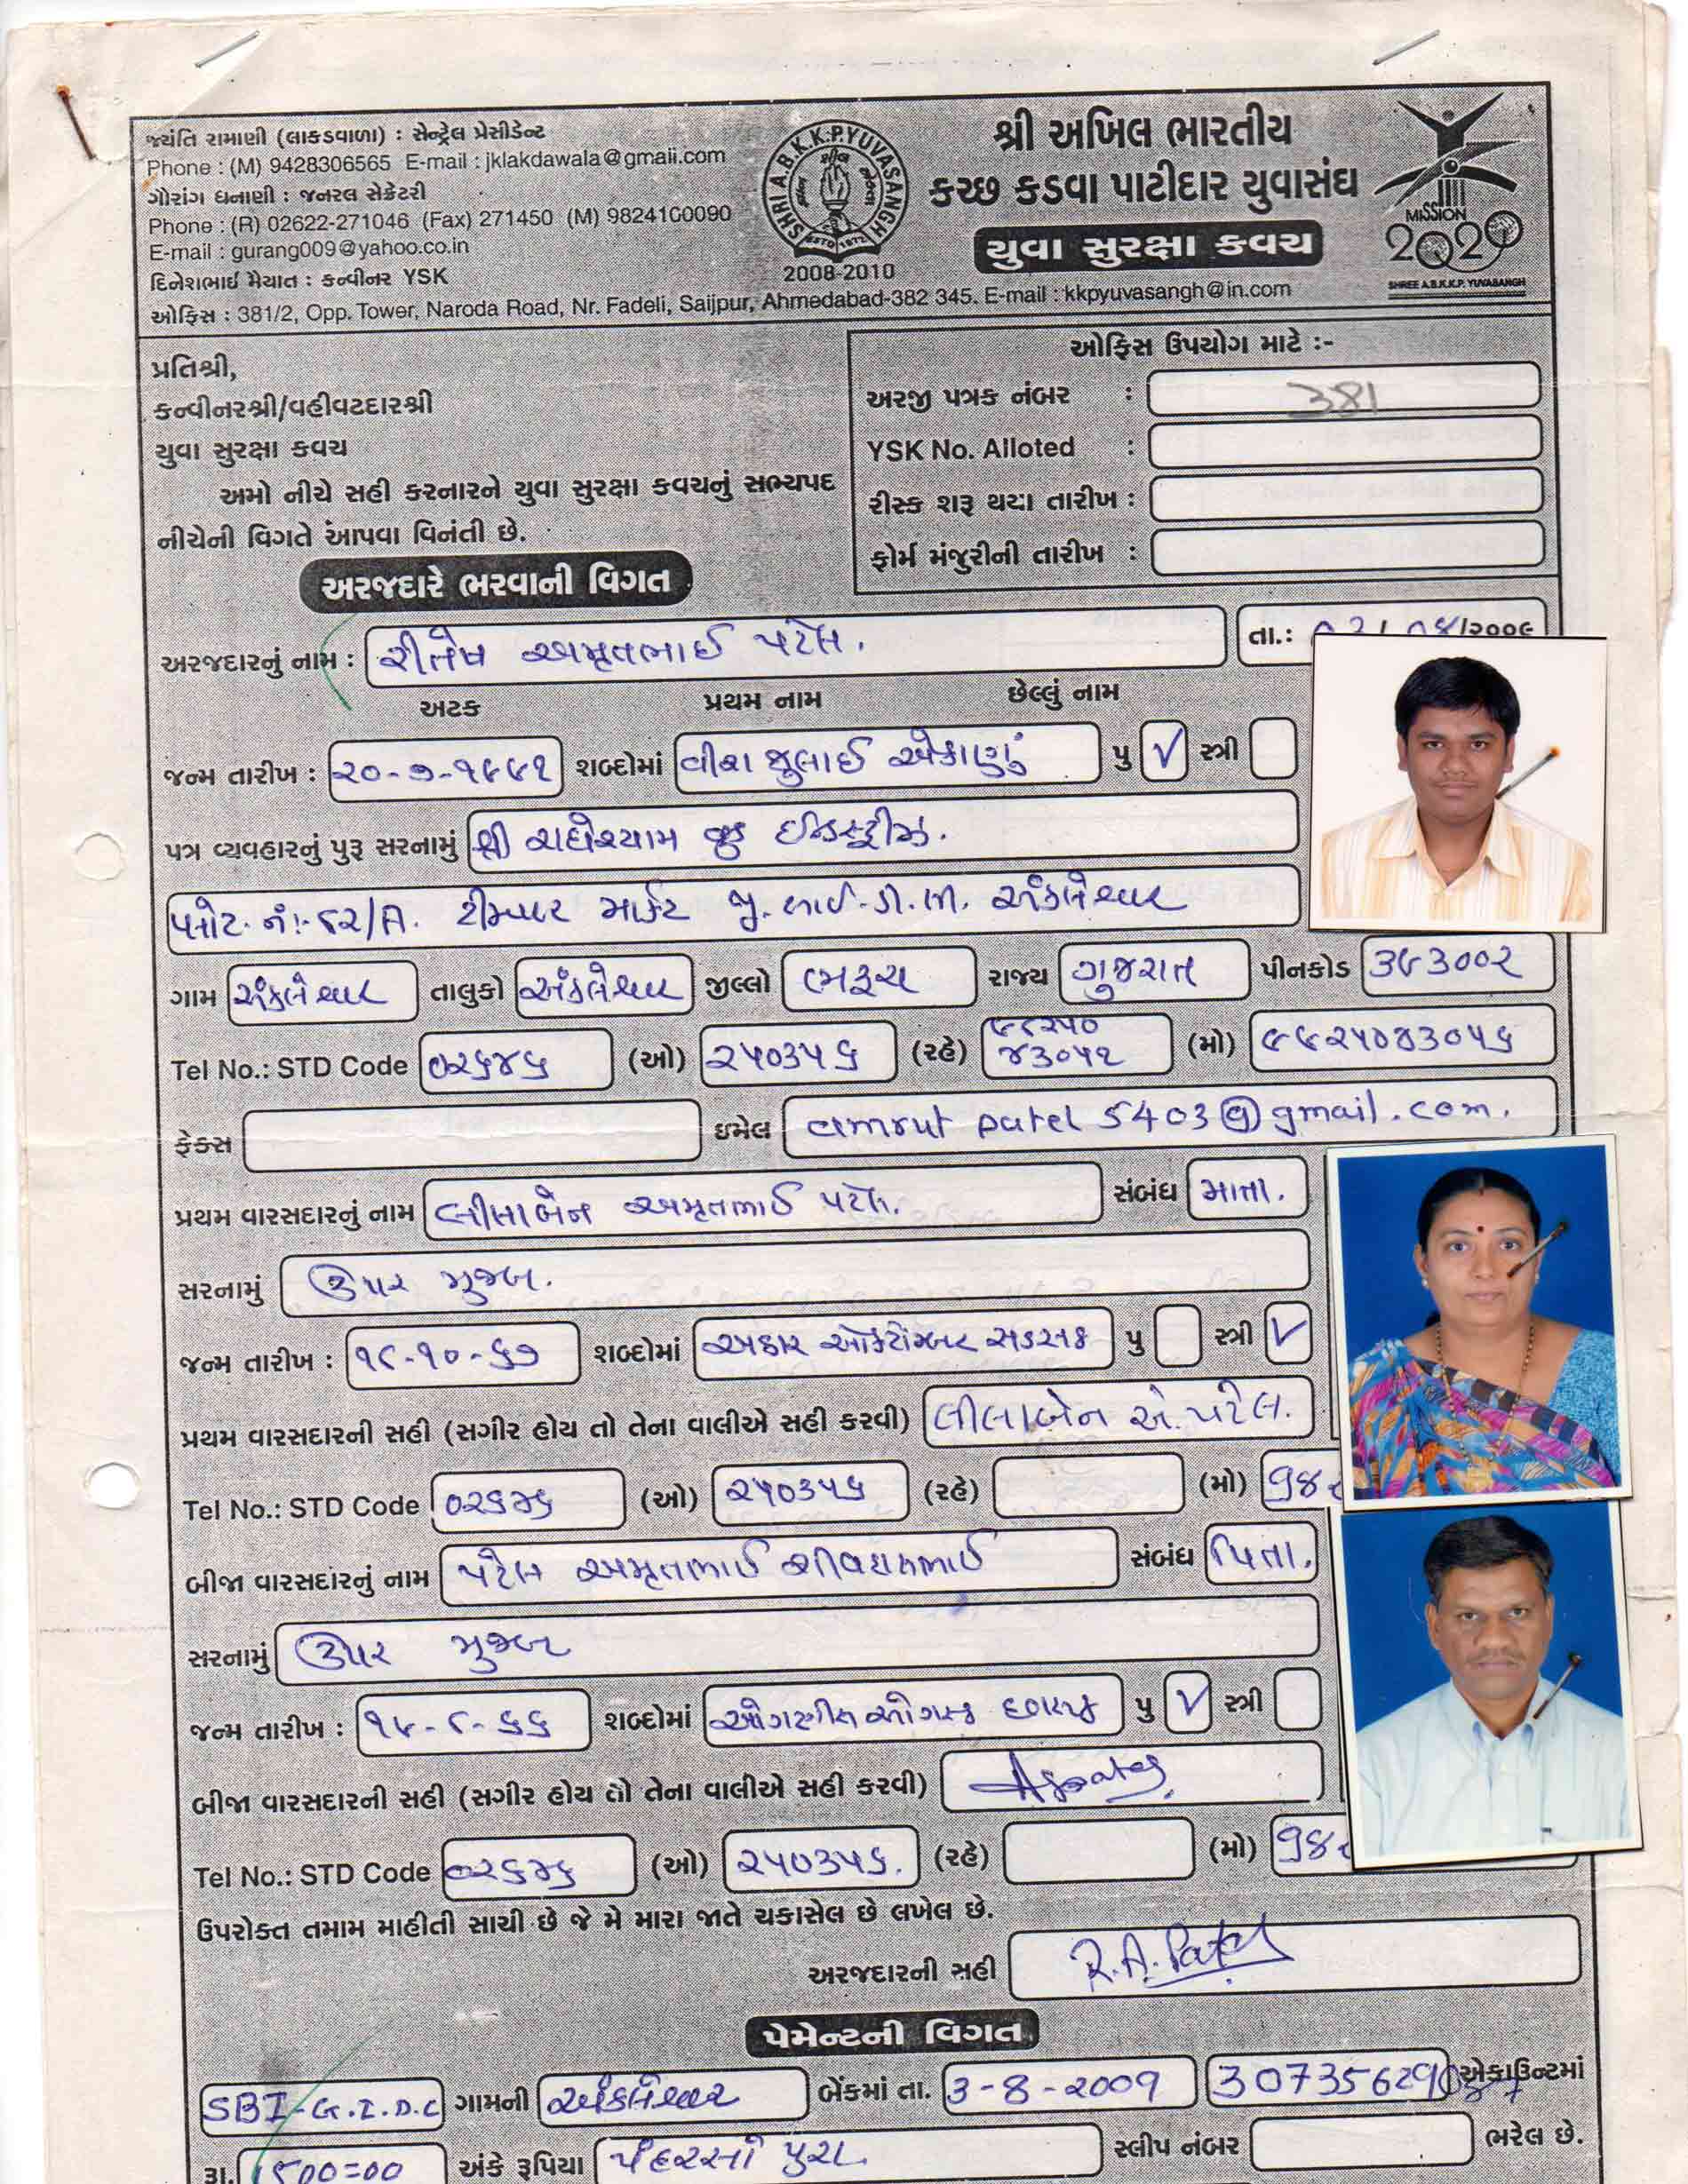 જયંતિ રામાણી (લાકડવાળા) : સેન્ટ્રેલ પ્રેસીડેન્ટ
Phone : (M) 9428306565 E-mail : jklakdawala@gmail.com
ગૌરાંગ ધનાણી : જનરલ સેક્રેટરી
Phone : (R) 02622-271046 (Fax) 271450 (M) 9824100090
E-mail : gurang009@yahoo.co.in
દિનેશભાઈ મૈયાત : કન્વીનર YSK
SHRI A.B.K.K.P.YUVASANGH
ESTD 1972
2008-2010
શ્રી અખિલ ભારતીય
કચ્છ કડવા પાટીદાર યુવાસંઘ
યુવા સુરક્ષા કવચ
MISSION
2020
SHREE A.B.K.K.P. YUVASANGH
ઓફિસ : 381/2, Opp. Tower, Naroda Road, Nr. Fadeli, Saijpur, Ahmedabad-382 345. E-mail : kkpyuvasangh@in.com
પ્રતિશ્રી,
કન્વીનરશ્રી/વહીવટદારશ્રી
યુવા સુરક્ષા કવચ
અમો નીચે સહી કરનારને યુવા સુરક્ષા કવચનું સભ્યપદ
નીચેની વિગતે આપવા વિનંતી છે.
ઓફિસ ઉપયોગ માટે :-
અરજી પત્રક નંબર : 381
YSK No. Alloted :
રીસ્ક શરૂ થયા તારીખ :
ફોર્મ મંજુરીની તારીખ :
અરજદારે ભરવાની વિગત
અરજદારનું નામ : રીતેષ અમૃતભાઈ પટેલ. તા.: /૨૦૦૯
અટક પ્રથમ નામ છેલ્લું નામ
જન્મ તારીખ : ૨૦-૭-૧૯૯૧ શબ્દોમાં વીશ જુલાઈ એકાણું પુ √ સ્ત્રી
પત્ર વ્યવહારનું પુરૂ સરનામું શ્રી રાધેશ્યામ વુડ ઈન્ડસ્ટ્રીઝ.
પ્લોટ નં:- ૬૨/A. ટીમ્બર માર્કેટ જી.આઈ.ડી.સી. અંકલેશ્વર
ગામ અંકલેશ્વર તાલુકો અંકલેશ્વર જીલ્લો ભરૂચ રાજ્ય ગુજરાત પીનકોડ ૩૯૩૦૦૨
Tel No.: STD Code ૦૨૬૪૬ (ઓ) ૨૫૦૩૫૬ (રહે) ૯૯૨૫૦ ૪૩૦૫૧ (મો) ૯૯૨૫૦૪૩૦૫૬
ફેક્સ ઇમેલ amrut patel 5403@gmail.com.
પ્રથમ વારસદારનું નામ લીલાબેન અમૃતભાઈ પટેલ. સંબંધ માતા.
સરનામું ઉપર મુજબ.
જન્મ તારીખ : ૧૮-૧૦-૬૭ શબ્દોમાં અઢાર ઓક્ટોમ્બર સડસઠ પુ સ્ત્રી √
પ્રથમ વારસદારની સહી (સગીર હોય તો તેના વાલીએ સહી કરવી) લીલાબેન એ. પટેલ.
Tel No.: STD Code ૦૨૬૪૬ (ઓ) ૨૫૦૩૫૬ (રહે) (મો)
બીજા વારસદારનું નામ પટેલ અમૃતભાઈ શીવદાસભાઈ સંબંધ પિતા.
સરનામું ઉપર મુજબ
જન્મ તારીખ : ૧૯-૮-૬૬ શબ્દોમાં ઓગણીસ ઓગસ્ટ છાસઠ પુ √ સ્ત્રી
બીજા વારસદારની સહી (સગીર હોય તો તેના વાલીએ સહી કરવી)
Tel No.: STD Code ૦૨૬૪૬ (ઓ) ૨૫૦૩૫૬. (રહે) (મો)
ઉપરોક્ત તમામ માહીતી સાચી છે જે મે મારા જાતે ચકાસેલ છે લખેલ છે.
અરજદારની સહી R.A.Patel
પેમેન્ટની વિગત
SBI-G.I.D.C ગામની અંકલેશ્વર બેંકમાં તા. 3-8-2009 એકાઉન્ટમાં
રૂા. 1500=00 અંકે રૂપિયા પંદરસો પુરા. સ્લીપ નંબર ભરેલ છે.